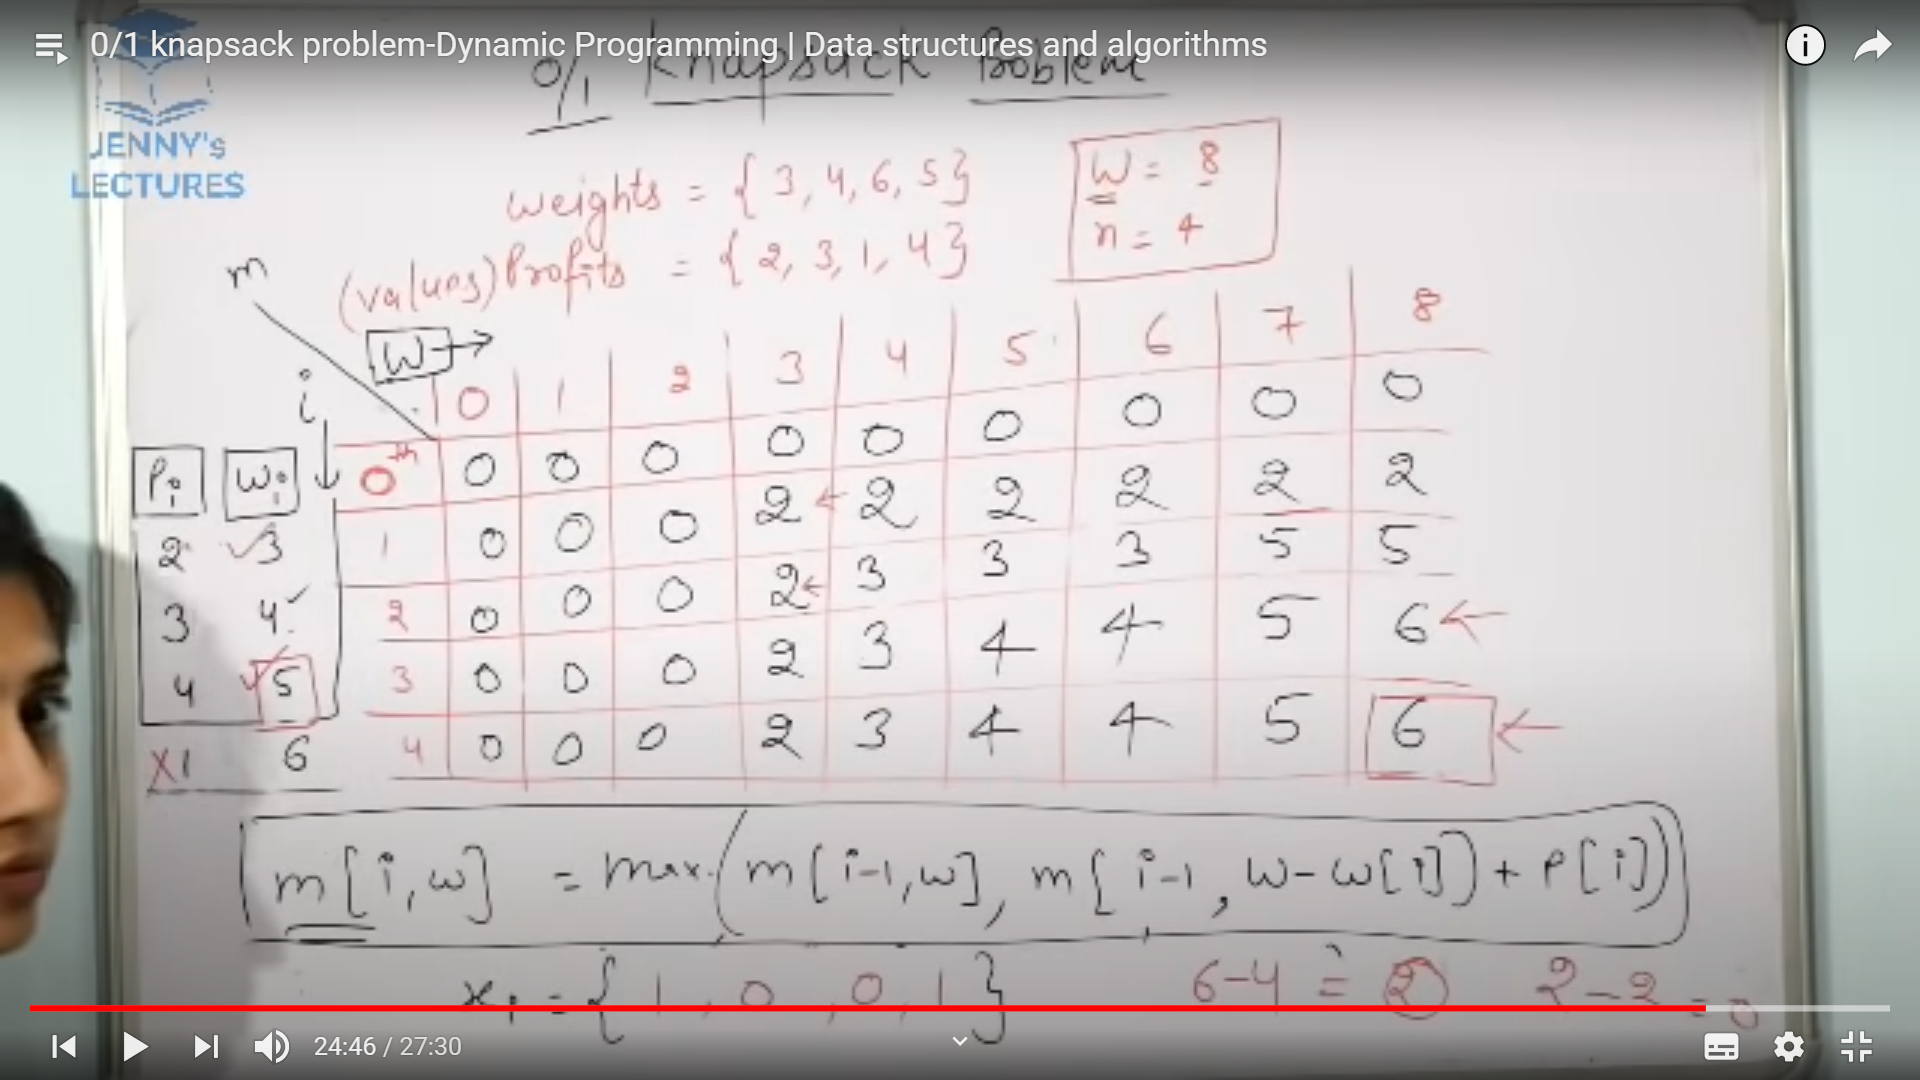 0/1 knapsack problem-Dynamic Programming | Data structures and algorithms
0/1 Knapsack Problem
JENNY's
LECTURES
weights = { 3, 4, 6, 5 }
(values) Profits = { 2, 3, 1, 4 }
W = 8
n = 4
m
W →
i
0 1 2 3 4 5 6 7 8
Pi Wi 0th 0 0 0 0 0 0 0 0 0
2 3 1 0 0 0 2 2 2 2 2 2
3 4 2 0 0 0 2 3 3 3 5 5
4 5 3 0 0 0 2 3 4 4 5 6
1 6 4 0 0 0 2 3 4 4 5 6
m[i,w] = max(m[i-1,w], m[i-1, w-w[i]) + P[i])
xi = { 1, 0, 0, 1 }
6-4 = 2
2-2 = 0
24:46 / 27:30